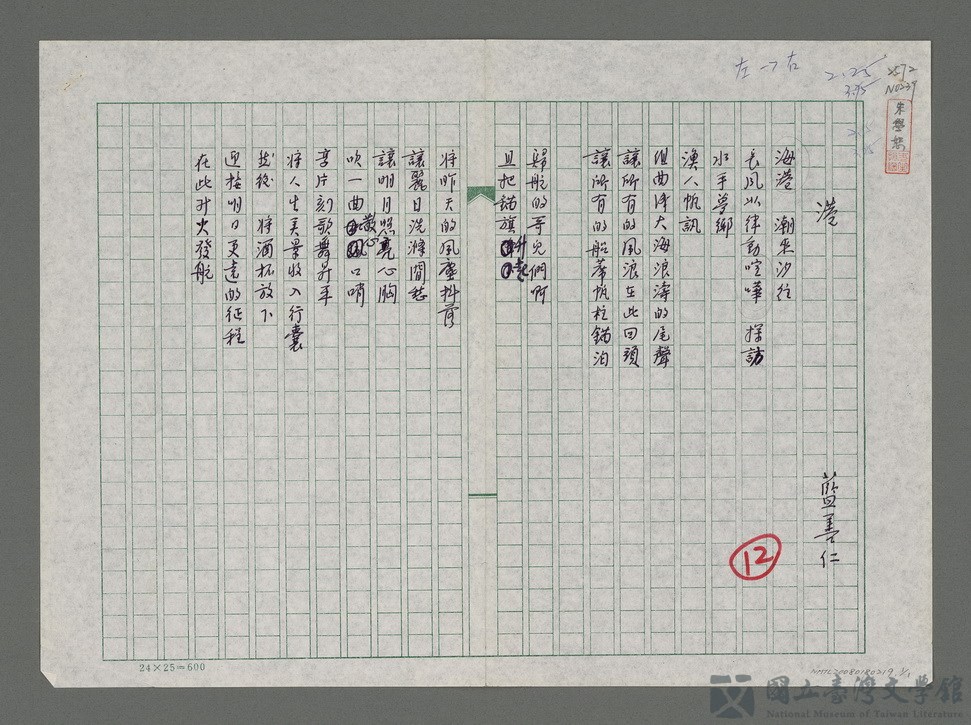 左→右
2572
N0239
朱學恕
港
藍善仁
海港 潮來汐往
長風以律動喧嘩 探訪
水手夢鄉
漁人帆訊
組曲偉大海浪濤的尾聲
讓所有的風浪在此回頭
讓所有的船落帆拉錨泊
歸航的哥兒們啊
且把錨旗升起
將昨天的風塵抖落
讓麗日洗滌閒愁
讓明月照亮心胸
吹一曲散心口哨
享片刻歌舞昇平
將人生美景收入行囊
然後 將酒杯放下
迎接明日更遠的征程
在此升火發航
12
24×25=600
NMTL20080180219 1/1
國立臺灣文學館
National Museum of Taiwan Literature